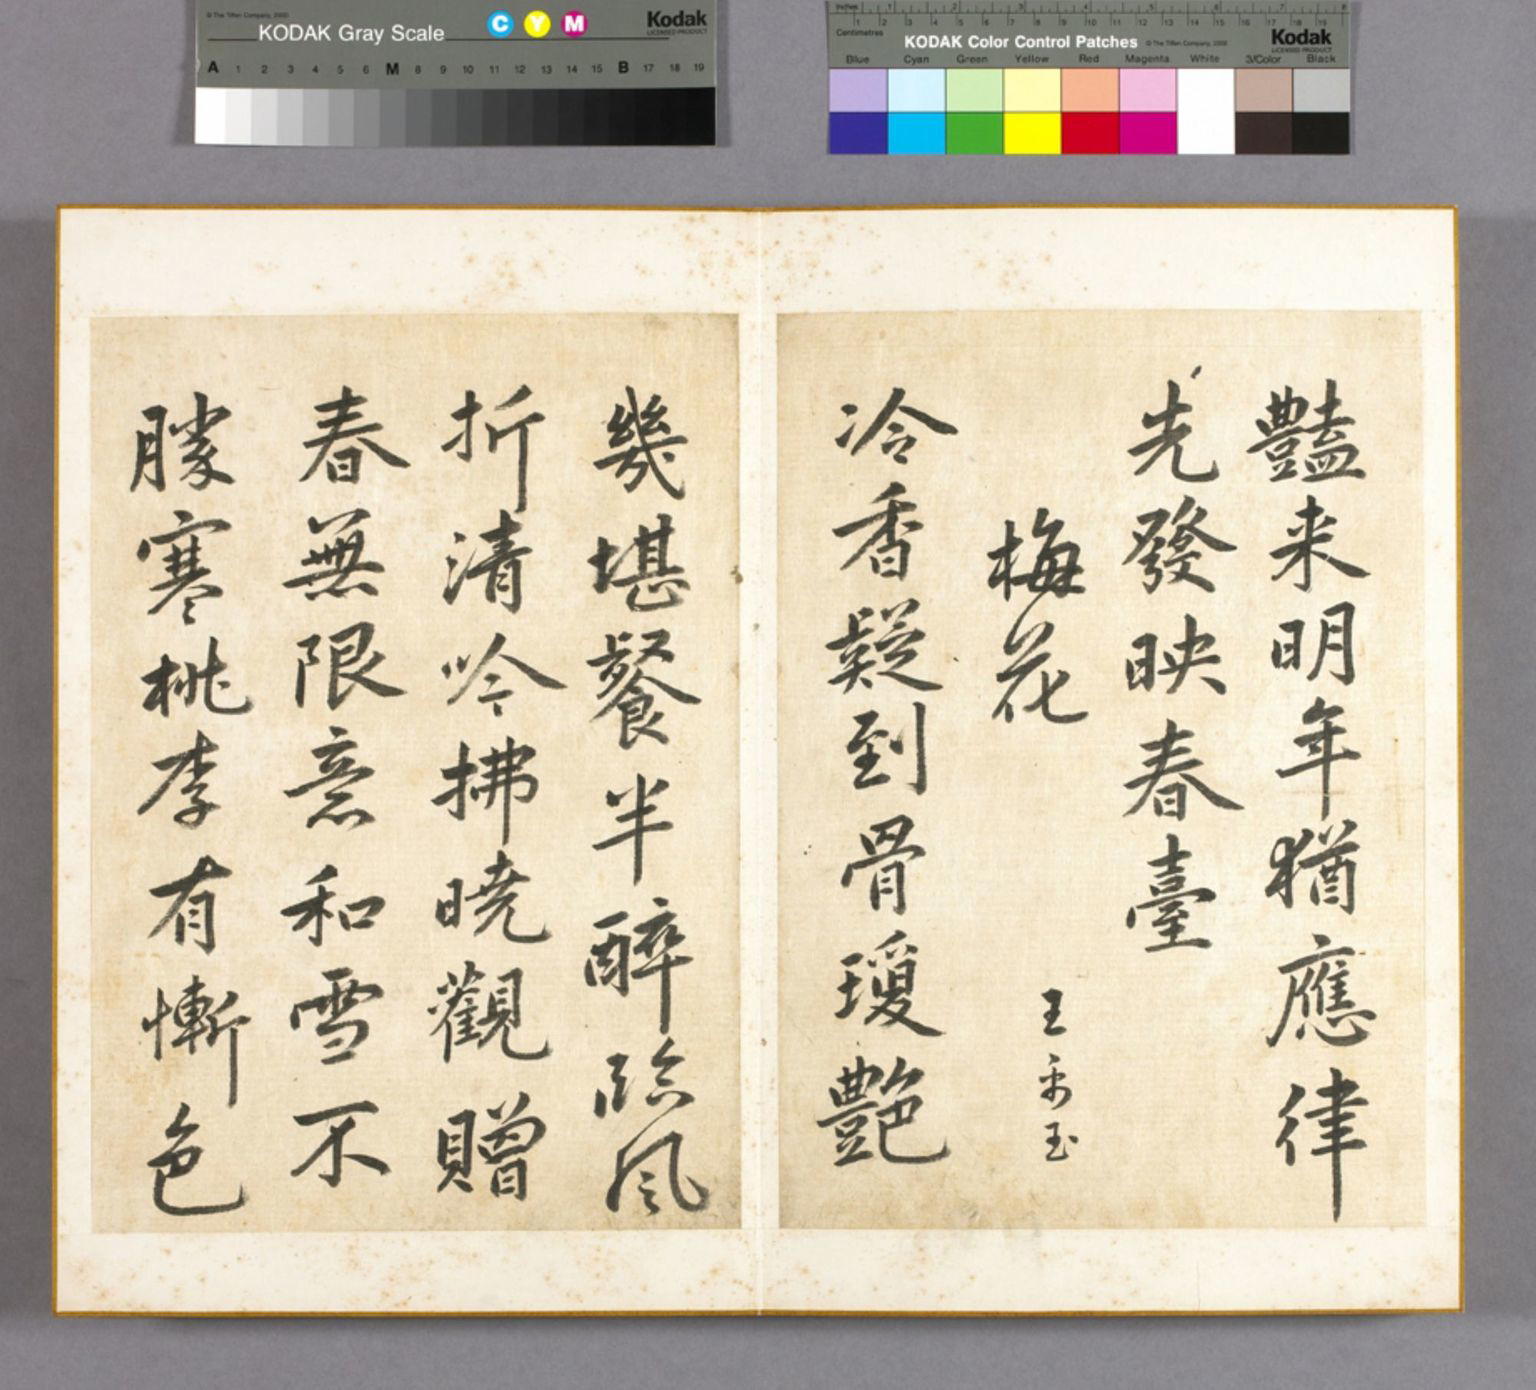 © The Tiffen Company, 2000
KODAK Gray Scale
C Y M
Kodak
LICENSED PRODUCT
A 1 2 3 4 5 6 M 8 9 10 11 12 13 14 15 B 17 18 19
Inches 1 2 3 4 5 6 7 8
Centimetres 1 2 3 4 5 6 7 8 9 10 11 12 13 14 15 16 17 18 19
KODAK Color Control Patches
© The Tiffen Company, 2000
Kodak
LICENSED PRODUCT
Blue Cyan Green Yellow Red Magenta White 3/Color Black
豔来明年猶應律
先發映春臺
梅花
王禹玉
冷香疑到骨瓊艷
幾堪餐半醉臨風
折清吟拂曉觀贈
春無限意和雪不
勝寒桃李有慚色